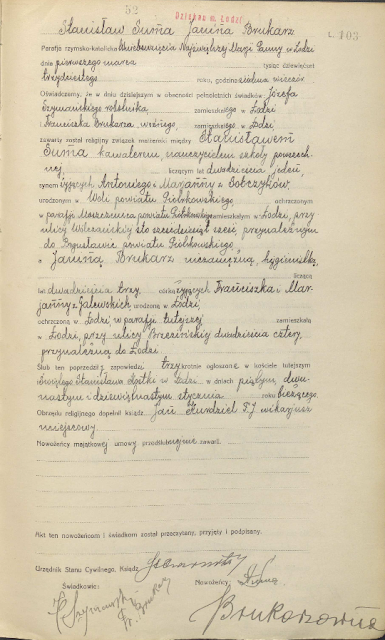 52
Dziekan m. Łodzi
L. 103
Stanisław Suma Janina Brukarz
Parafja rzymsko-katolicka Wniebowzięcia Najświętszej Marji Panny w Łodzi
dnia pierwszego marca tysiąc dziewięćset
trzydziestego roku, godzina siódma wieczór
Oświadczamy, że w dniu dzisiejszym w obecności pełnoletnich świadków: Józefa
Szymańskiego robotnika zamieszkałego w Łodzi
i Franciszka Brukarza woźnego, zamieszkałego w Łodzi,
zawarty został religijny związek małżeński między Stanisławem
Suma kawalerem, nauczycielem szkoły powszech-
nej liczącym lat dwadzieścia jeden,
synem żyjących Antoniego i Marjanny z Sobczyków,
urodzonym w Woli powiatu Piotrkowskiego ochrzczonym
w parafji Moszczenica powiatu Piotrkowskiego zamieszkałym w Łodzi, przy
ulicy Wólczańskiej sto sześćdziesiąt sześć, przynależnym
do Bogusławic powiatu Piotrkowskiego
a Janiną Brukarz niezamężną, hygienistką,
liczącą
lat dwadzieścia trzy, córką żyjących Franciszka i Mar-
janny z Galewskich urodzoną w Łodzi,
ochrzczoną w Łodzi w parafji tutejszej zamieszkałą
w Łodzi, przy ulicy Brzezińskiej dwadzieścia cztery,
przynależną do Łodzi.
Ślub ten poprzedziły zapowiedzi, trzykrotnie ogłoszone w kościele tutejszym
Świętego Stanisława Kostki w Łodzi w dniach piątym, dwu-
nastym i dziewiętnastym stycznia roku bieżącego.
Obrzędu religijnego dopełnił ksiądz Jan T.J wikarjusz
miejscowy
Nowożeńcy majątkowej umowy przedślubnej nie zawarli.
Akt ten nowożeńcom i świadkom został przeczytany, przyjęty i podpisany.
Urzędnik Stanu Cywilnego, Ksiądz
Świadkowie: Nowożeńcy: Suma
Szymański
Fr. Brukarz
Brukarzówna